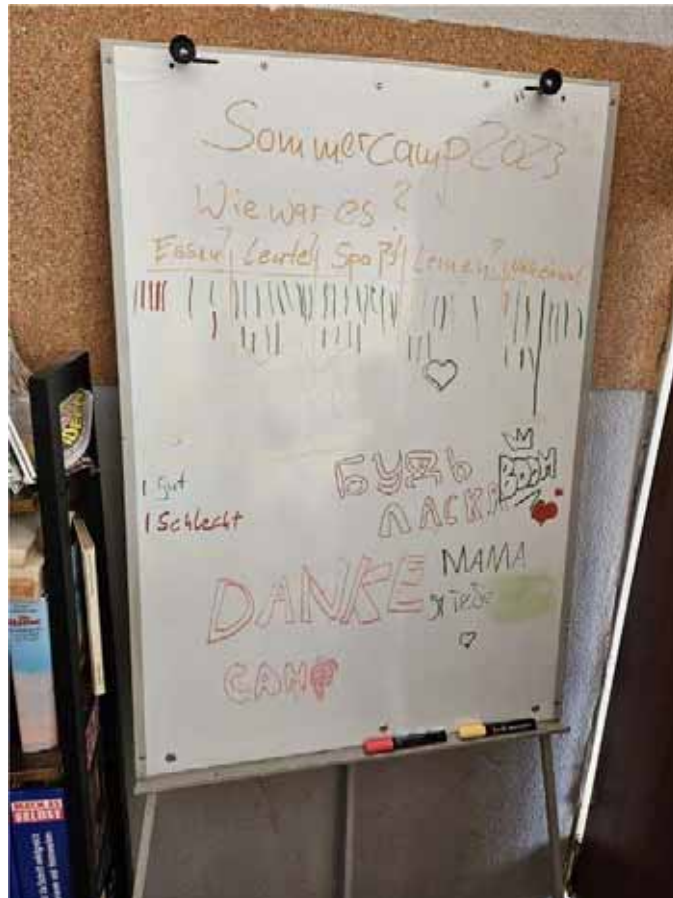 Sommercamp 2023
Wie war es?
Essen? Leute? Spaß? Lernen?
I gut
I Schlecht
БУДЬ
ЛАСКА
BOOM
MAMA
DANKE
CAMP
MACH ES
SELBST